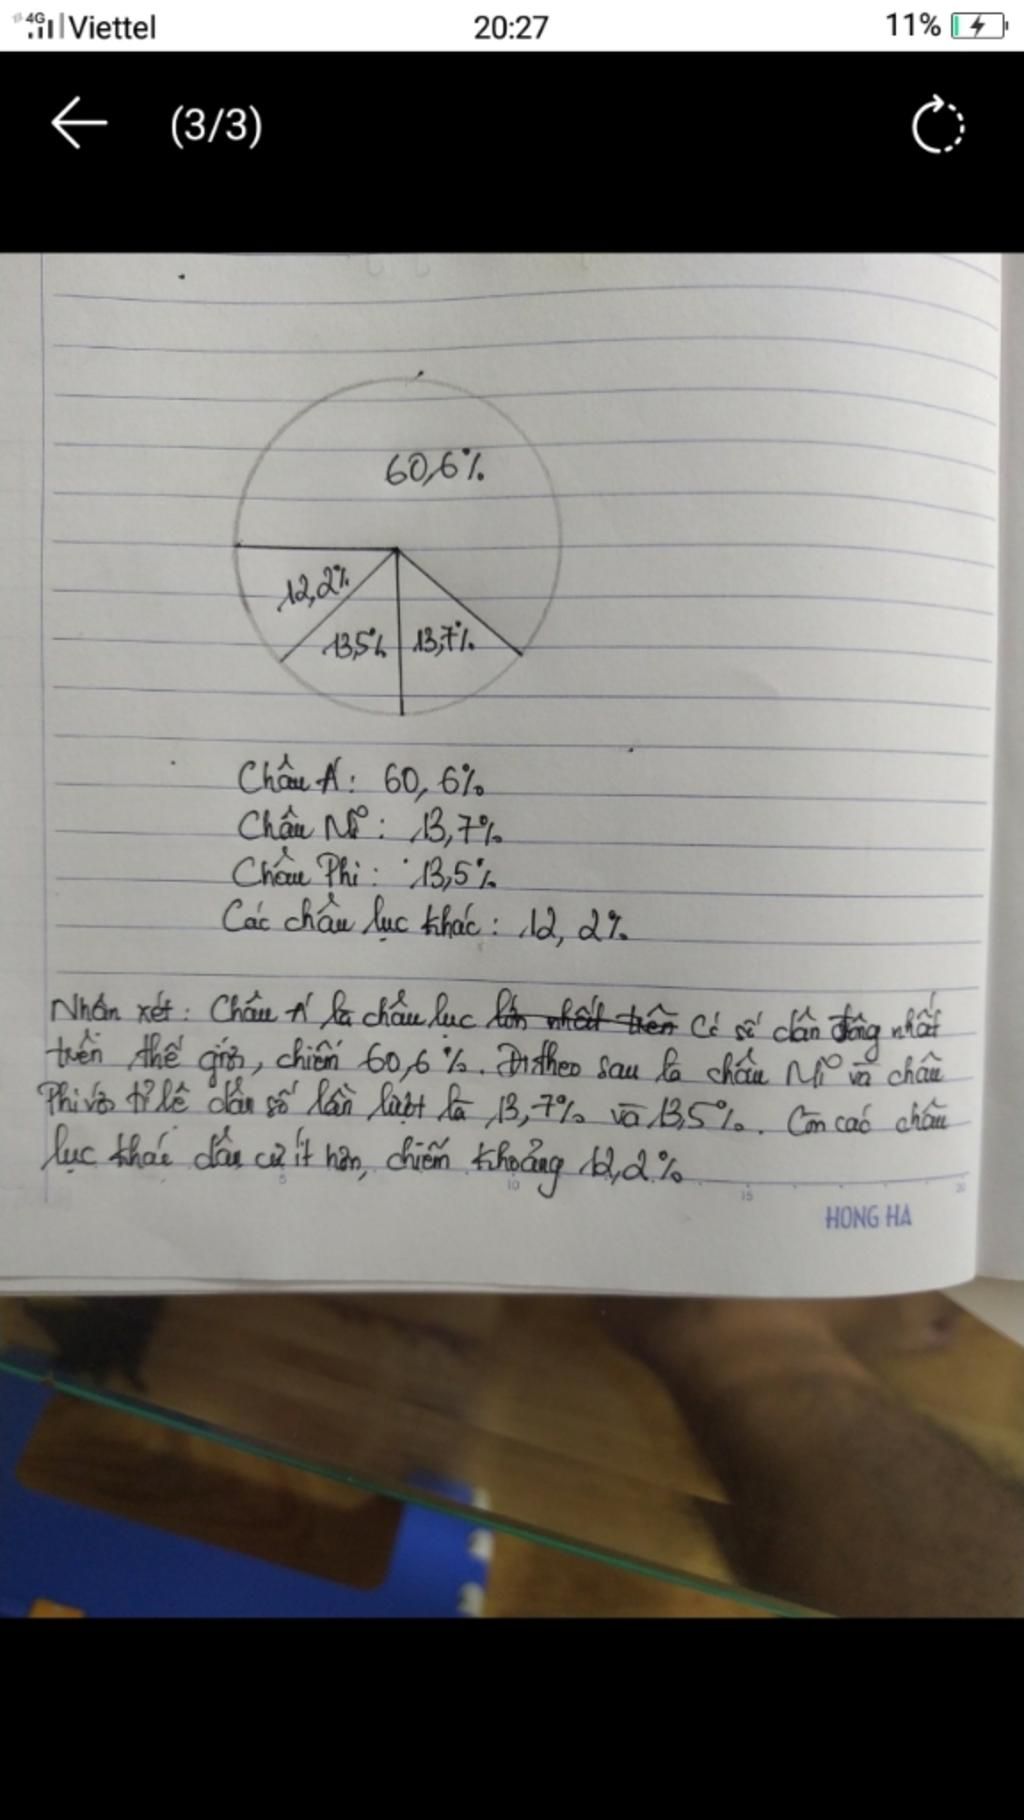 4G Viettel 20:27 11%
(3/3)
60,6%
12,2%
13,5% 13,7%
Châu Á: 60,6%
Châu Mĩ: 13,7%
Châu Phi: 13,5%
Các châu lục khác: 12,2%
Nhận xét: Châu Á là châu lục lớn nhất trên Có số dân đông nhất
trên thế giới, chiếm 60,6%. Đi theo sau là châu Mĩ và châu
Phi với tỉ lệ dân số lần lượt là 13,7% và 13,5%. Còn các châu
lục khác dân cư ít hơn, chiếm khoảng 12,2%
5 10 15 20
HONG HA